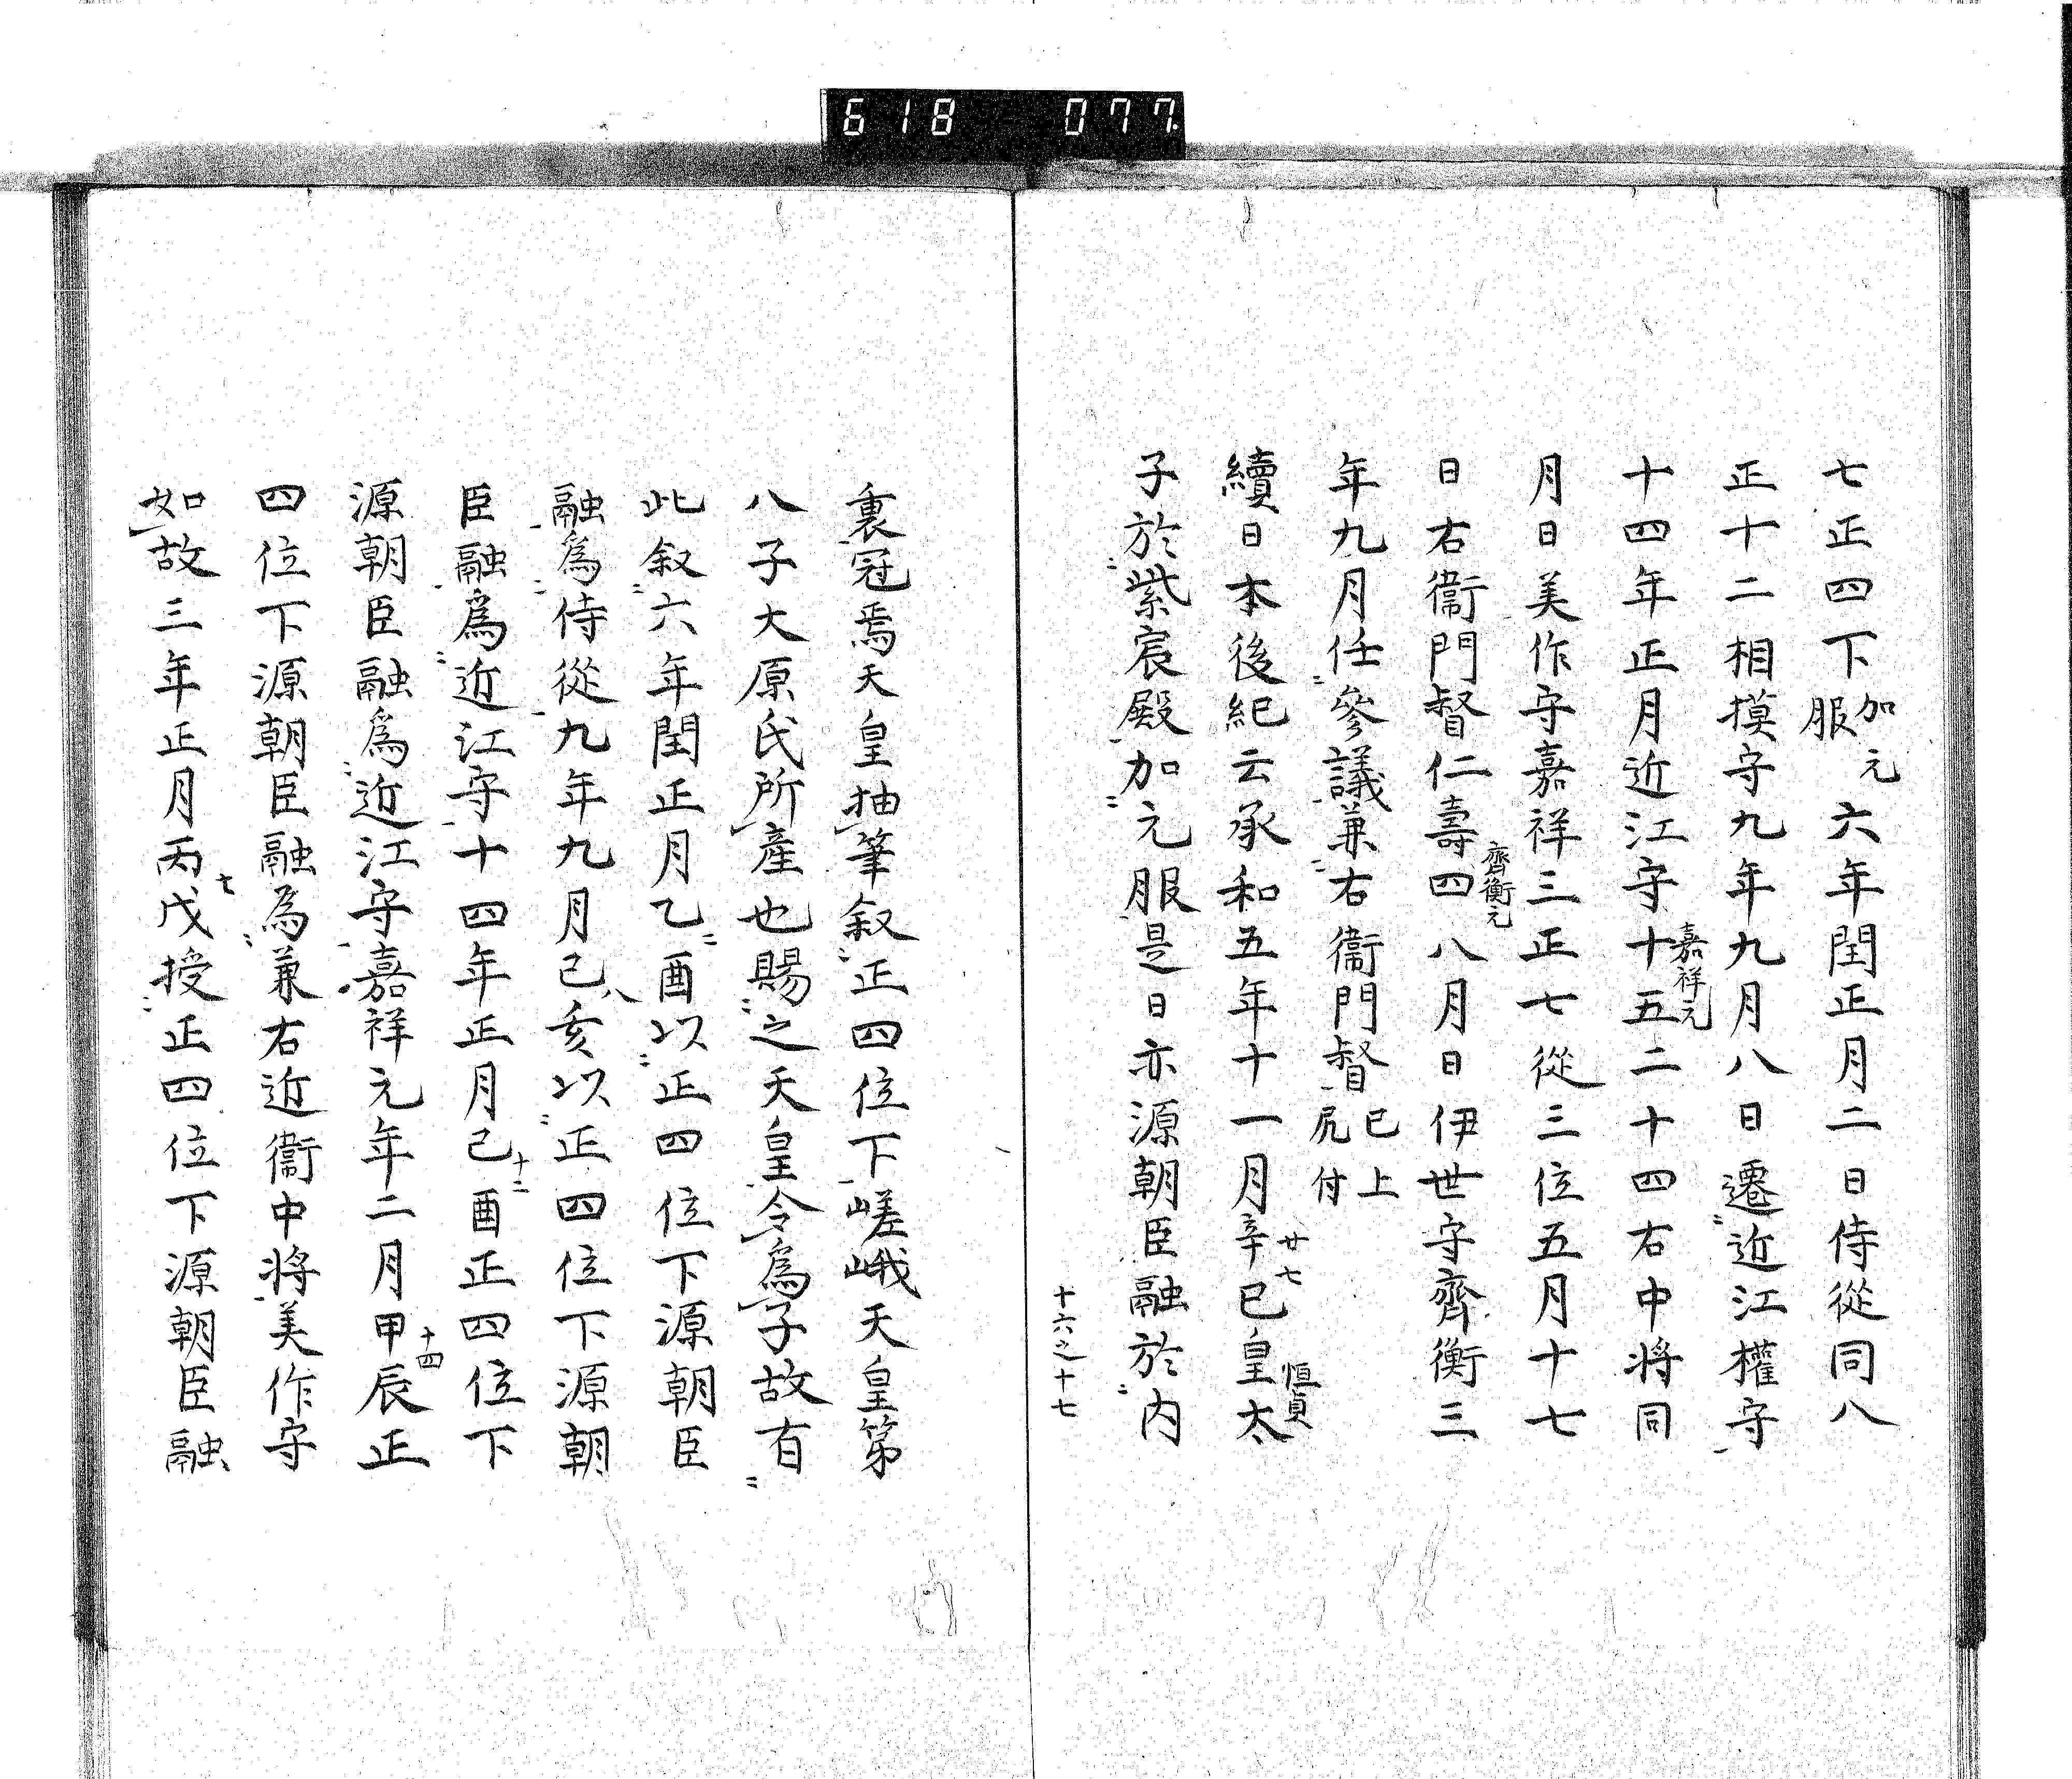 618 077
七正四下加元服六年閏正月二日侍從同八
正十二相摸守九年九月八日遷近江權守
十四年正月近江守嘉祥元十五二十四右中将同
月日美作守嘉祥三正七從三位五月十七
日右衞門督仁壽四齊衡元八月日伊世守齊衡三
年九月任參議兼右衞門督已上尻付
續日本後紀云承和五年十一月辛巳廿七皇太恒貞
子於紫宸殿加元服是日亦源朝臣融於内
十六之十七
裏冠焉天皇抽筆叙正四位下嵯峨天皇第
八子大原氏所產也賜之天皇令爲子故有
此叙六年閏正月乙酉以正四位下源朝臣
融爲侍從九年九月己亥八以正四位下源朝
臣融爲近江守十四年正月己酉十二正四位下
源朝臣融爲近江守嘉祥元年二月甲辰十四正
四位下源朝臣融為兼右近衞中将美作守
如故三年正月丙戌七授正四位下源朝臣融